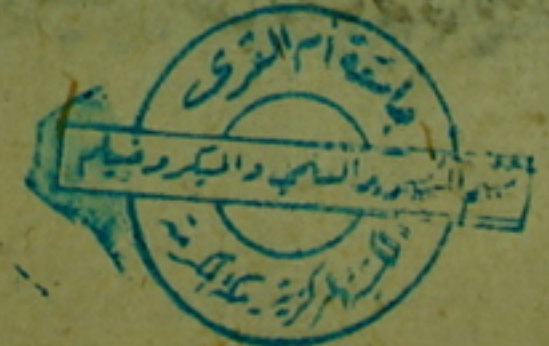 جامعة أم القرى
قسم التصوير العلمي والميكروفيلم
المكتبة المركزية بمكة المكرمة